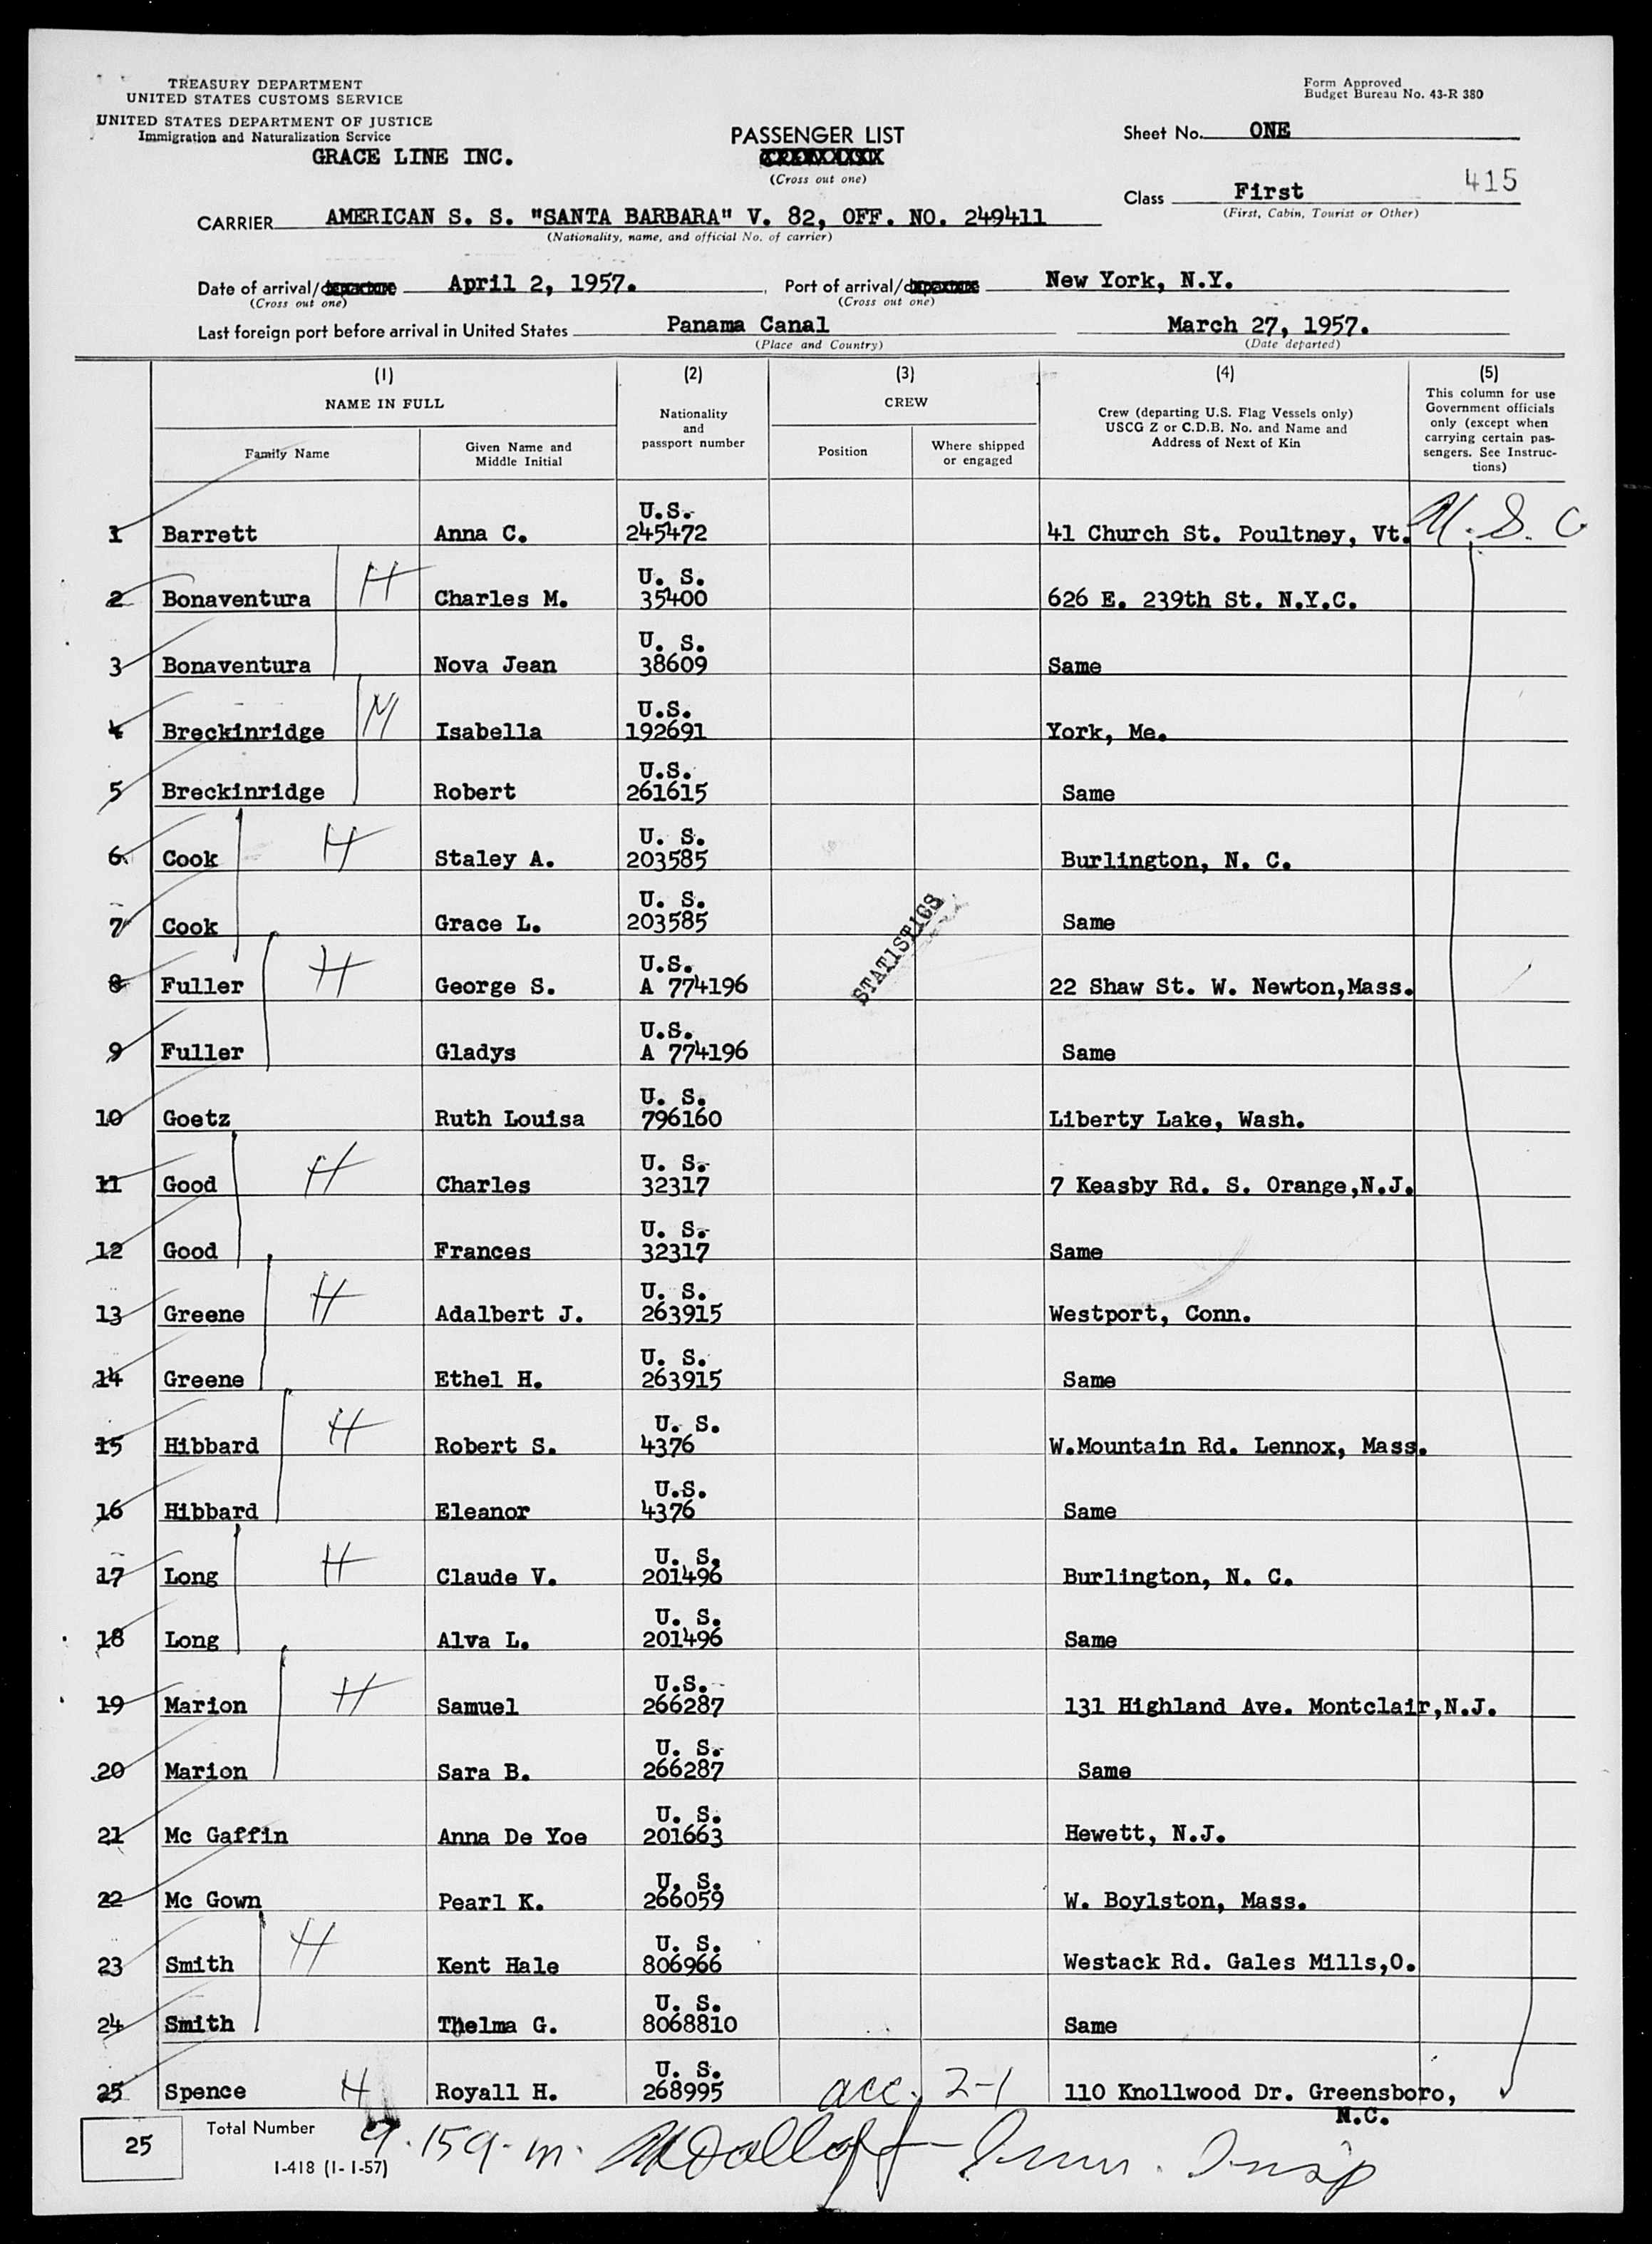 TREASURY DEPARTMENT
UNITED STATES CUSTOMS SERVICE
UNITED STATES DEPARTMENT OF JUSTICE
Immigration and Naturalization Service
GRACE LINE INC.
PASSENGER LIST
(Cross out one)
Form Approved
Budget Bureau No. 43-R 380
Sheet No. ONE
415
Class First
(First, Cabin, Tourist or Other)
CARRIER AMERICAN S. S. "SANTA BARBARA" V. 82, OFF. NO. 249411
(Nationality, name, and official No. of carrier)
Date of arrival/departure April 2, 1957. Port of arrival/departure New York, N.Y.
(Cross out one) (Cross out one)
Last foreign port before arrival in United States Panama Canal March 27, 1957.
(Place and Country) (Date departed)
(1) (2) (3) (4) (5)
NAME IN FULL
Family Name
Given Name and
Middle Initial
Nationality
and
passport number
CREW
Position
Where shipped
or engaged
Crew (departing U.S. Flag Vessels only)
USCG Z or C.D.B. No. and Name and
Address of Next of Kin
This column for use
Government officials
only (except when
carrying certain pas-
sengers. See Instruc-
tions)
U.S.
1 Barrett Anna C. 245472 41 Church St. Poultney, Vt. U.S.C
U. S.
2 Bonaventura H Charles M. 35400 626 E. 239th St. N.Y.C.
U. S.
3 Bonaventura Nova Jean 38609 Same
U.S.
4 Breckinridge M Isabella 192691 York, Me.
U.S.
5 Breckinridge Robert 261615 Same
U. S.
6 Cook H Staley A. 203585 Burlington, N. C.
U. S.
7 Cook Grace L. 203585 Same
STATISTICS
U.S.
8 Fuller H George S. A 774196 22 Shaw St. W. Newton,Mass.
U.S.
9 Fuller Gladys A 774196 Same
U. S.
10 Goetz Ruth Louisa 796160 Liberty Lake, Wash.
U. S.
11 Good H Charles 32317 7 Keasby Rd. S. Orange,N.J.
U. S.
12 Good Frances 32317 Same
U. S.
13 Greene H Adalbert J. 263915 Westport, Conn.
U. S.
14 Greene Ethel H. 263915 Same
U. S.
15 Hibbard H Robert S. 4376 W.Mountain Rd. Lennox, Mass.
U.S.
16 Hibbard Eleanor 4376 Same
U. S.
17 Long H Claude V. 201496 Burlington, N. C.
U. S.
18 Long Alva L. 201496 Same
U.S.
19 Marion H Samuel 266287 131 Highland Ave. Montclair,N.J.
U. S.
20 Marion Sara B. 266287 Same
U. S.
21 Mc Gaffin Anna De Yoe 201663 Hewett, N.J.
U. S.
22 Mc Gown Pearl K. 266059 W. Boylston, Mass.
U. S.
23 Smith H Kent Hale 806966 Westack Rd. Gales Mills,O.
U. S.
24 Smith Thelma G. 8068810 Same
U. S.
25 Spence H Royall H. 268995 acc. 2-1 110 Knollwood Dr. Greensboro,
N.C.
25 Total Number
I-418 (1-1-57)
9.15 a.m. Imm. Insp